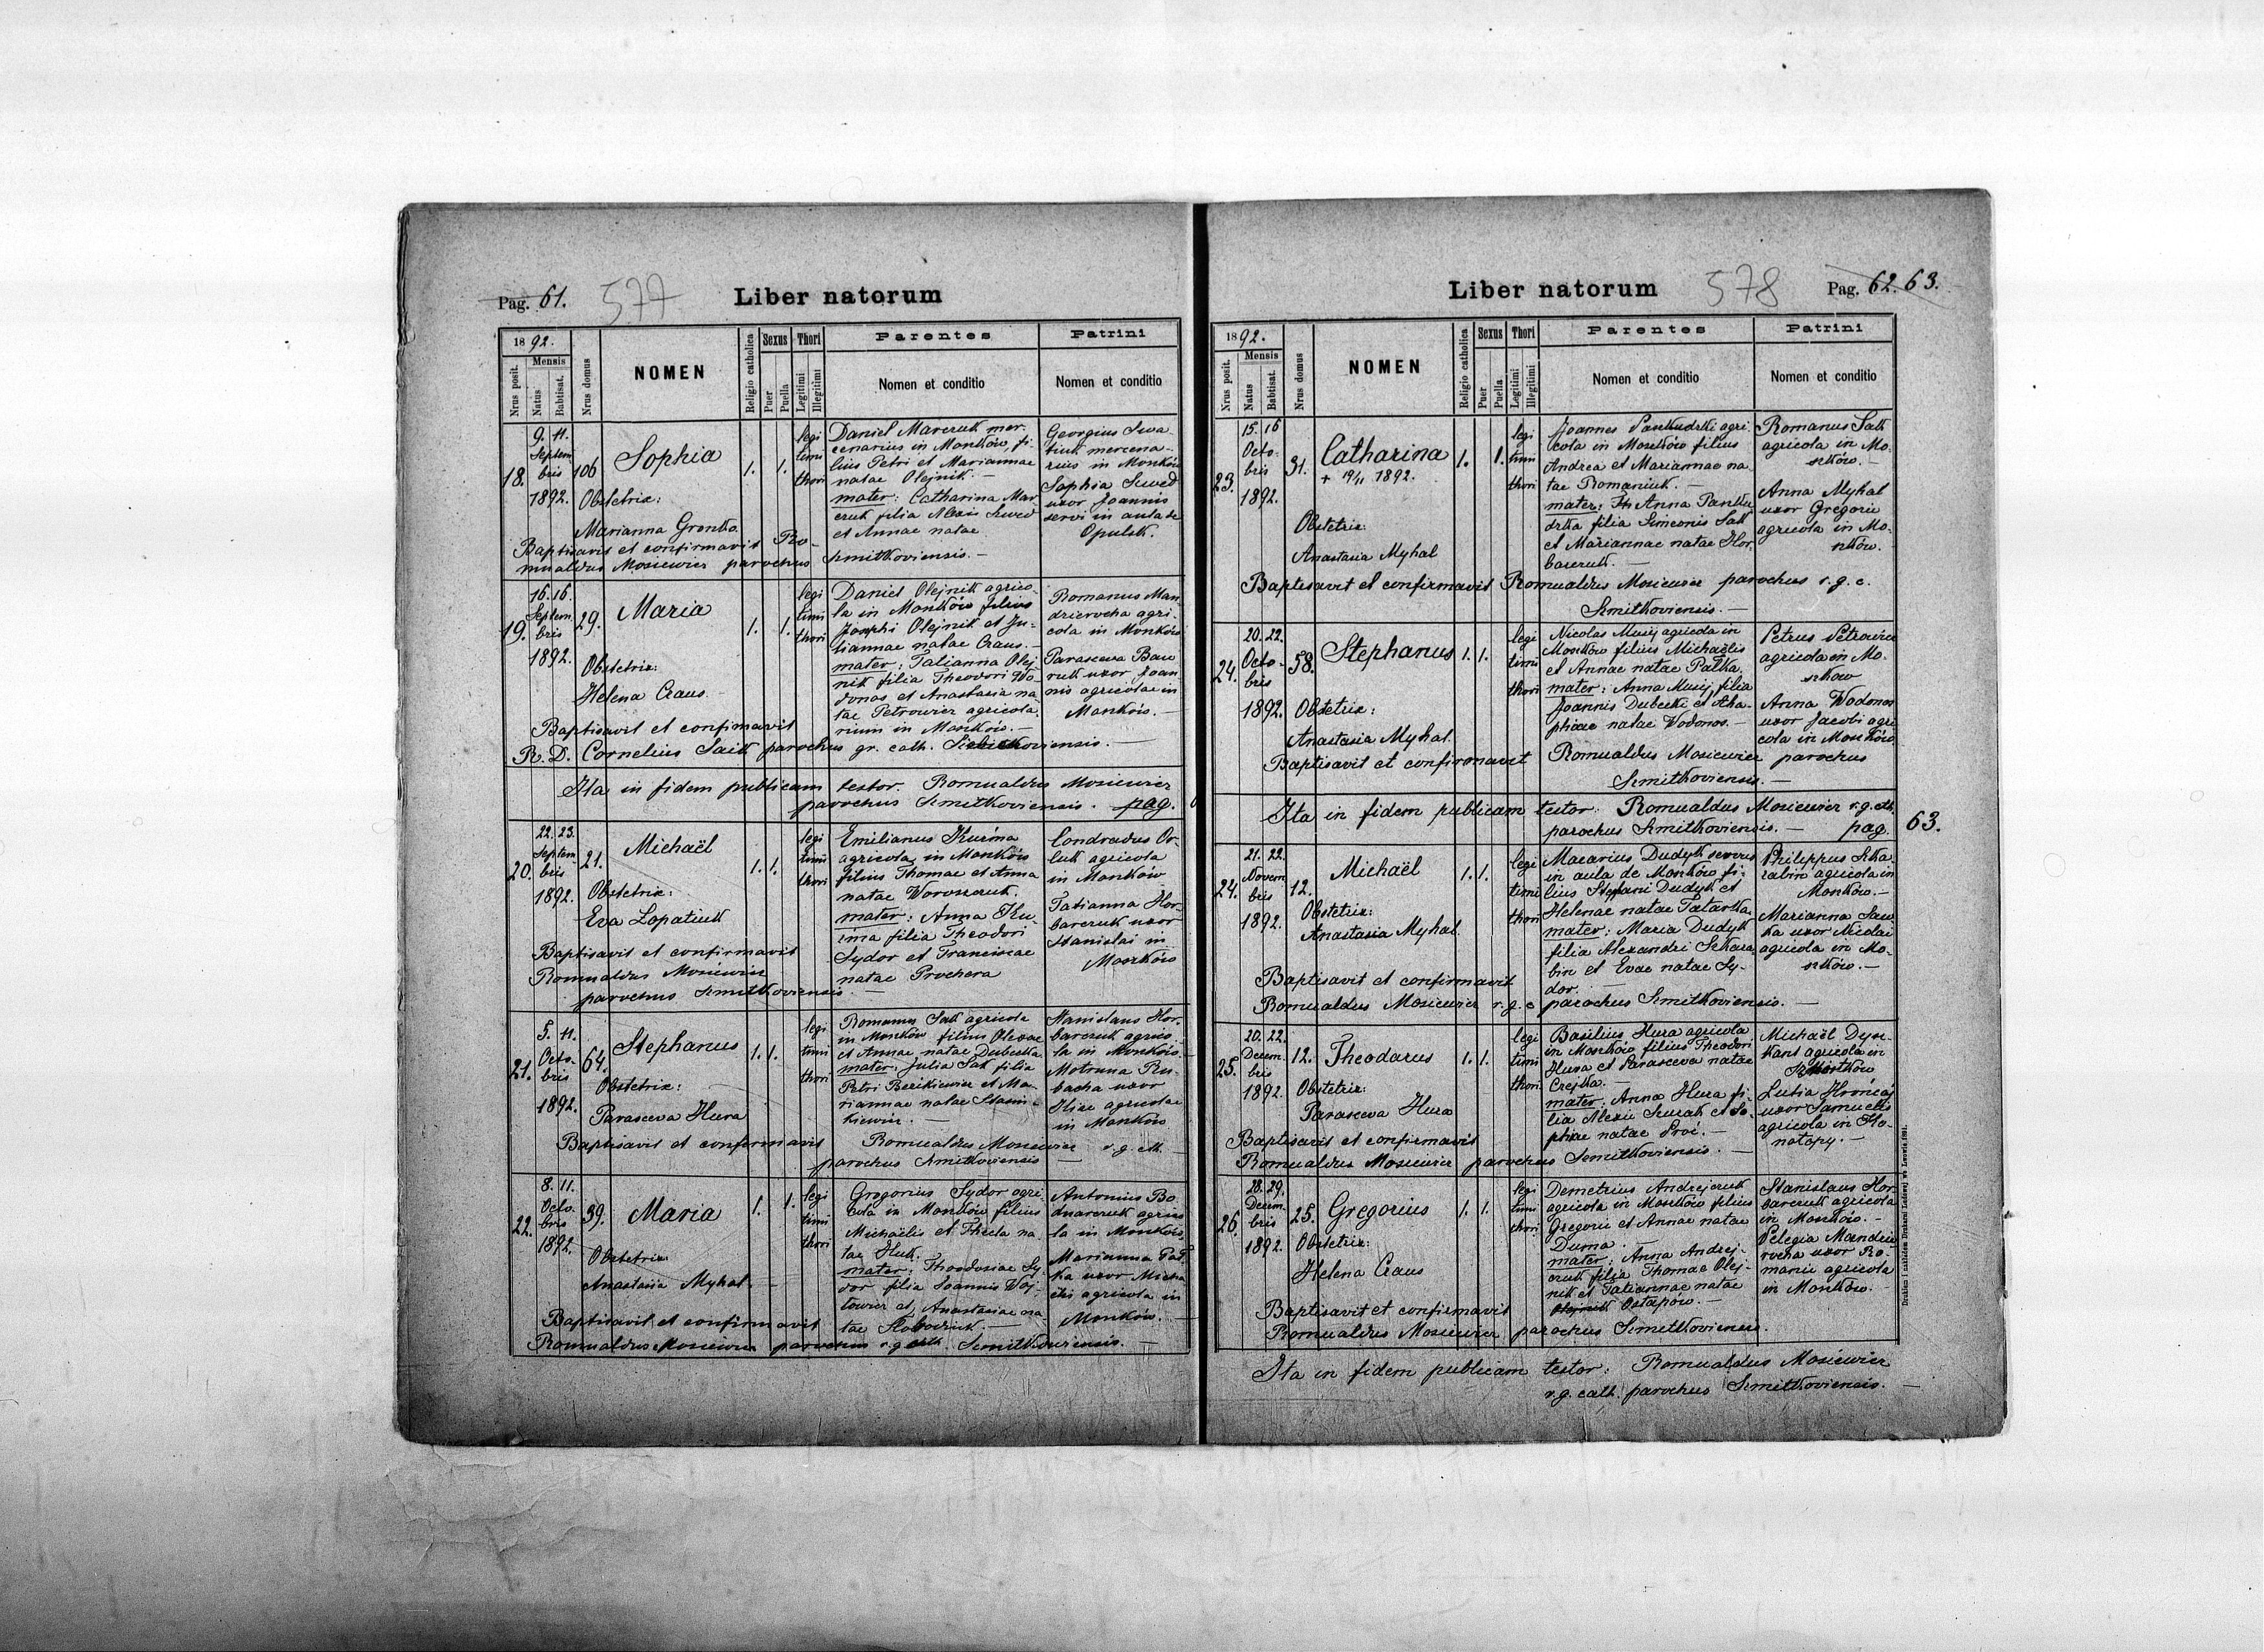 Pag. 61.
577
Liber natorum
1892.
Mensis
Nrus posit.
Natus
Babtisat.
Nrus domus
NOMEN
Religio catholica
Sexus
Puer
Puella
Thori
Legitimi
Illegitimi
Parentes
Nomen et conditio
Patrini
Nomen et conditio
18.
9. 11.
Septem
bris
1892.
106
Sophia
Obstetrix:
Marianna Gronko
1.
1.
legi
timi
thori
Daniel Marczuk mer-
cenarius in Moszków, fi-
lius Petri et Mariannae
natae Olejnik. —
mater: Catharina Mar
czuk filia Alexii Szwed
et Annae natae
Georgius Iwa
tiuk mercena-
rius in Moszków
Sophia Szwed
uxor Joannis
servi in aula de
Opulsk.
Baptisavit et confirmavit Ro-
mualdus Mosiewicz parochus Szmitkoviensis. —
19.
16. 16.
Septem
bris
1892.
29.
Maria
Obstetrix:
Helena Craus.
1.
1.
legi
timi
thori
Daniel Olejnik agrico-
la in Moszków filius
Josephi Olejnik et Ju-
liannae natae Craus. —
mater: Tatianna Olej
nik filia Theodori Wo-
donos et Anastasia na
tae Petrowicz agricola-
rium in Moszków. —
Romanus Man
dzierocha agri-
cola in Moszków
Parasceva Baw
ruk uxor Joan
nis agricolae in
Moszków. —
Baptisavit et confirmavit
R. D. Cornelius Saik parochus gr. cath.
Ita in fidem publicam testor. Romualdus Mosiewicz
parochus Szmitkoviensis. pag.
20.
22. 23.
Septem
bris
1892.
21.
Michaël
Obstetrix:
Eva Lopatiuk
1.
1.
legi
timi
thori
Emilianus Kuźma
agricola in Moszków
filius Thomae et Anna
natae Woroszczuk.
mater: Anna Ku-
źma filia Theodori
Sydor et Franciscae
natae Prochera
Condradus Or-
luk agricola
in Moszków
Tatianna Hor-
barczuk uxor
Stanislai in
Moszków
Baptisavit et confirmavit
Romualdus Mosiewicz
parochus Szmitkoviensis. —
21.
5. 11.
Octo-
bris
1892.
64.
Stephanus
Obstetrix:
Parasceva Hura
1.
1.
legi
timi
thori
Romanus Sak agricola
in Moszków filius Olexae
et Annae natae Dubecka
mater: Julia Sak filia
Petri Bezikiewicz et Ma-
riannae natae Stasin-
kiewicz. —
Stanislaus Hor-
barczuk agrico-
la in Moszków. —
Motruna Ru-
bacha uxor
Iliae agricolae
in Moszków
Baptisavit et confirmavit Romualdus Mosiewicz r. g. cth.
parochus Szmitkoviensis —
22.
8. 11.
Octo-
bris
1892.
39.
Maria
Obstetrix:
Anastasia Myhal.
1.
1.
legi
timi
thori
Gregorius Sydor agri-
cola in Moszków filius
Michaëlis et Thecla na-
tae Huk.
mater: Theodosiae Sy-
dor filia Ioannis Woj-
towicz et Anastasiae na-
tae Slobodziuk. —
Antonius Bo
dnarczuk agrico
la in Moszków.
Marianna Pal
ka uxor Micha
ëlis agricola in
Moszków.
Baptisavit et confirmavit
Romualdus Mosiewicz parochus r. g. cath. Szmitkoviensis. —
Liber natorum
578
Pag. 62. 63.
1892.
Mensis
Nrus posit.
Natus
Babtisat.
Nrus domus
NOMEN
Religio catholica
Sexus
Puer
Puella
Thori
Legitimi
Illegitimi
Parentes
Nomen et conditio
Patrini
Nomen et conditio
23.
15. 16
Octo-
bris
1892.
31.
Catharina
+ 19/11 1892.
Obstetrix:
Anastasia Myhal
1.
1.
legi
timi
thori
Joannes Pankudzki agri-
cola in Moszków filius
Andrea et Mariannae na
tae Romaniuk. —
mater: Anna Panku
dzka filia Simeonis Sak
et Mariannae natae Hor
barczuk. —
Romanus Sak
agricola in Mo-
szków. —
Anna Myhal
uxor Gregorii
agricola in Mo-
szków.
Baptisavit et confirmavit Romualdus Mosiewicz parochus r. g. c.
Szmitkoviensis. —
24.
20. 22.
Octo-
bris
1892.
58.
Stephanus
Obstetrix:
Anastasia Myhal.
1.
1.
legi
timi
thori
Nicolas Musij agricola in
Moszków filius Michaëlis
et Annae natae Palka
mater: Anna Musij filia
Joannis Dubecki et Aha-
phiae natae Wodonos. —
Petrus Petrowicz
agricola in Mo-
szków
Anna Wodonos
uxor Jacobi agri
cola in Moszków
Baptisavit et confirmavit Romualdus Mosiewicz parochus
Szmitkoviensis. —
Ita in fidem publicam testor: Romualdus Mosiewicz r. g. cth.
parochus Szmitkoviensis. — pag. 63.
24.
21. 22.
Novem
bris
1892.
12.
Michaël
Obstetrix:
Anastasia Myhal.
1.
1.
legi
timi
thori
Macarius Dudyk servus
in aula de Moszków fi-
lius Stephani Dudyk et
Helenae natae Tatarska.
mater: Maria Dudyk
filia Alexandri Szkara
bin et Evae natae Sy-
dor. —
Philippus Szka
rabin agricola in
Moszków. —
Marianna Saw
ka uxor Nicolai
agricola in Mo-
szków. —
Baptisavit et confirmavit
Romualdus Mosiewicz r. g. c. parochus Szmitkoviensis. —
25.
20. 22.
Decem
bris
1892.
12.
Theodorus
Obstetrix:
Parasceva Hura
1.
1.
legi
timi
thori
Basilius Hura agricola
in Moszków filius Theodori
Hura et Parasceva natae
Czejka. —
mater: Anna Hura fi-
lia Alexii Szurak et So-
phiae natae Proć. —
Michaël Dysz-
kant agricola in
Moszków
Lutia Hrońcaj
uxor Samuelis
agricola in Ko-
natopy. —
Baptisavit et confirmavit
Romualdus Mosiewicz parochus Szmitkoviensis. —
26.
28. 29.
Decem
bris
1892.
25.
Gregorius
Obstetrix:
Helena Craus
1.
1.
legi
timi
thori
Demetrius Andrejczuk
agricola in Moszków filius
Gregorii et Annae natae
Duma. —
mater: Anna Andrej-
czuk filia Thomae Olej-
nik et Tatiannae natae
Olejnik Ostapow. —
Stanislaus Hor-
barczuk agricola
in Moszków. —
Pelegia Mandzie
rocha uxor Ro-
manii agricola
in Moszków. —
Baptisavit et confirmavit
Romualdus Mosiewicz parochus Szmitkoviensis.
Ita in fidem publicam testor: Romualdus Mosiewicz
r. g. cath. parochus Szmitkoviensis. —
Drukiem i nakładem Drukarni Ludowej we Lwowie 1891.